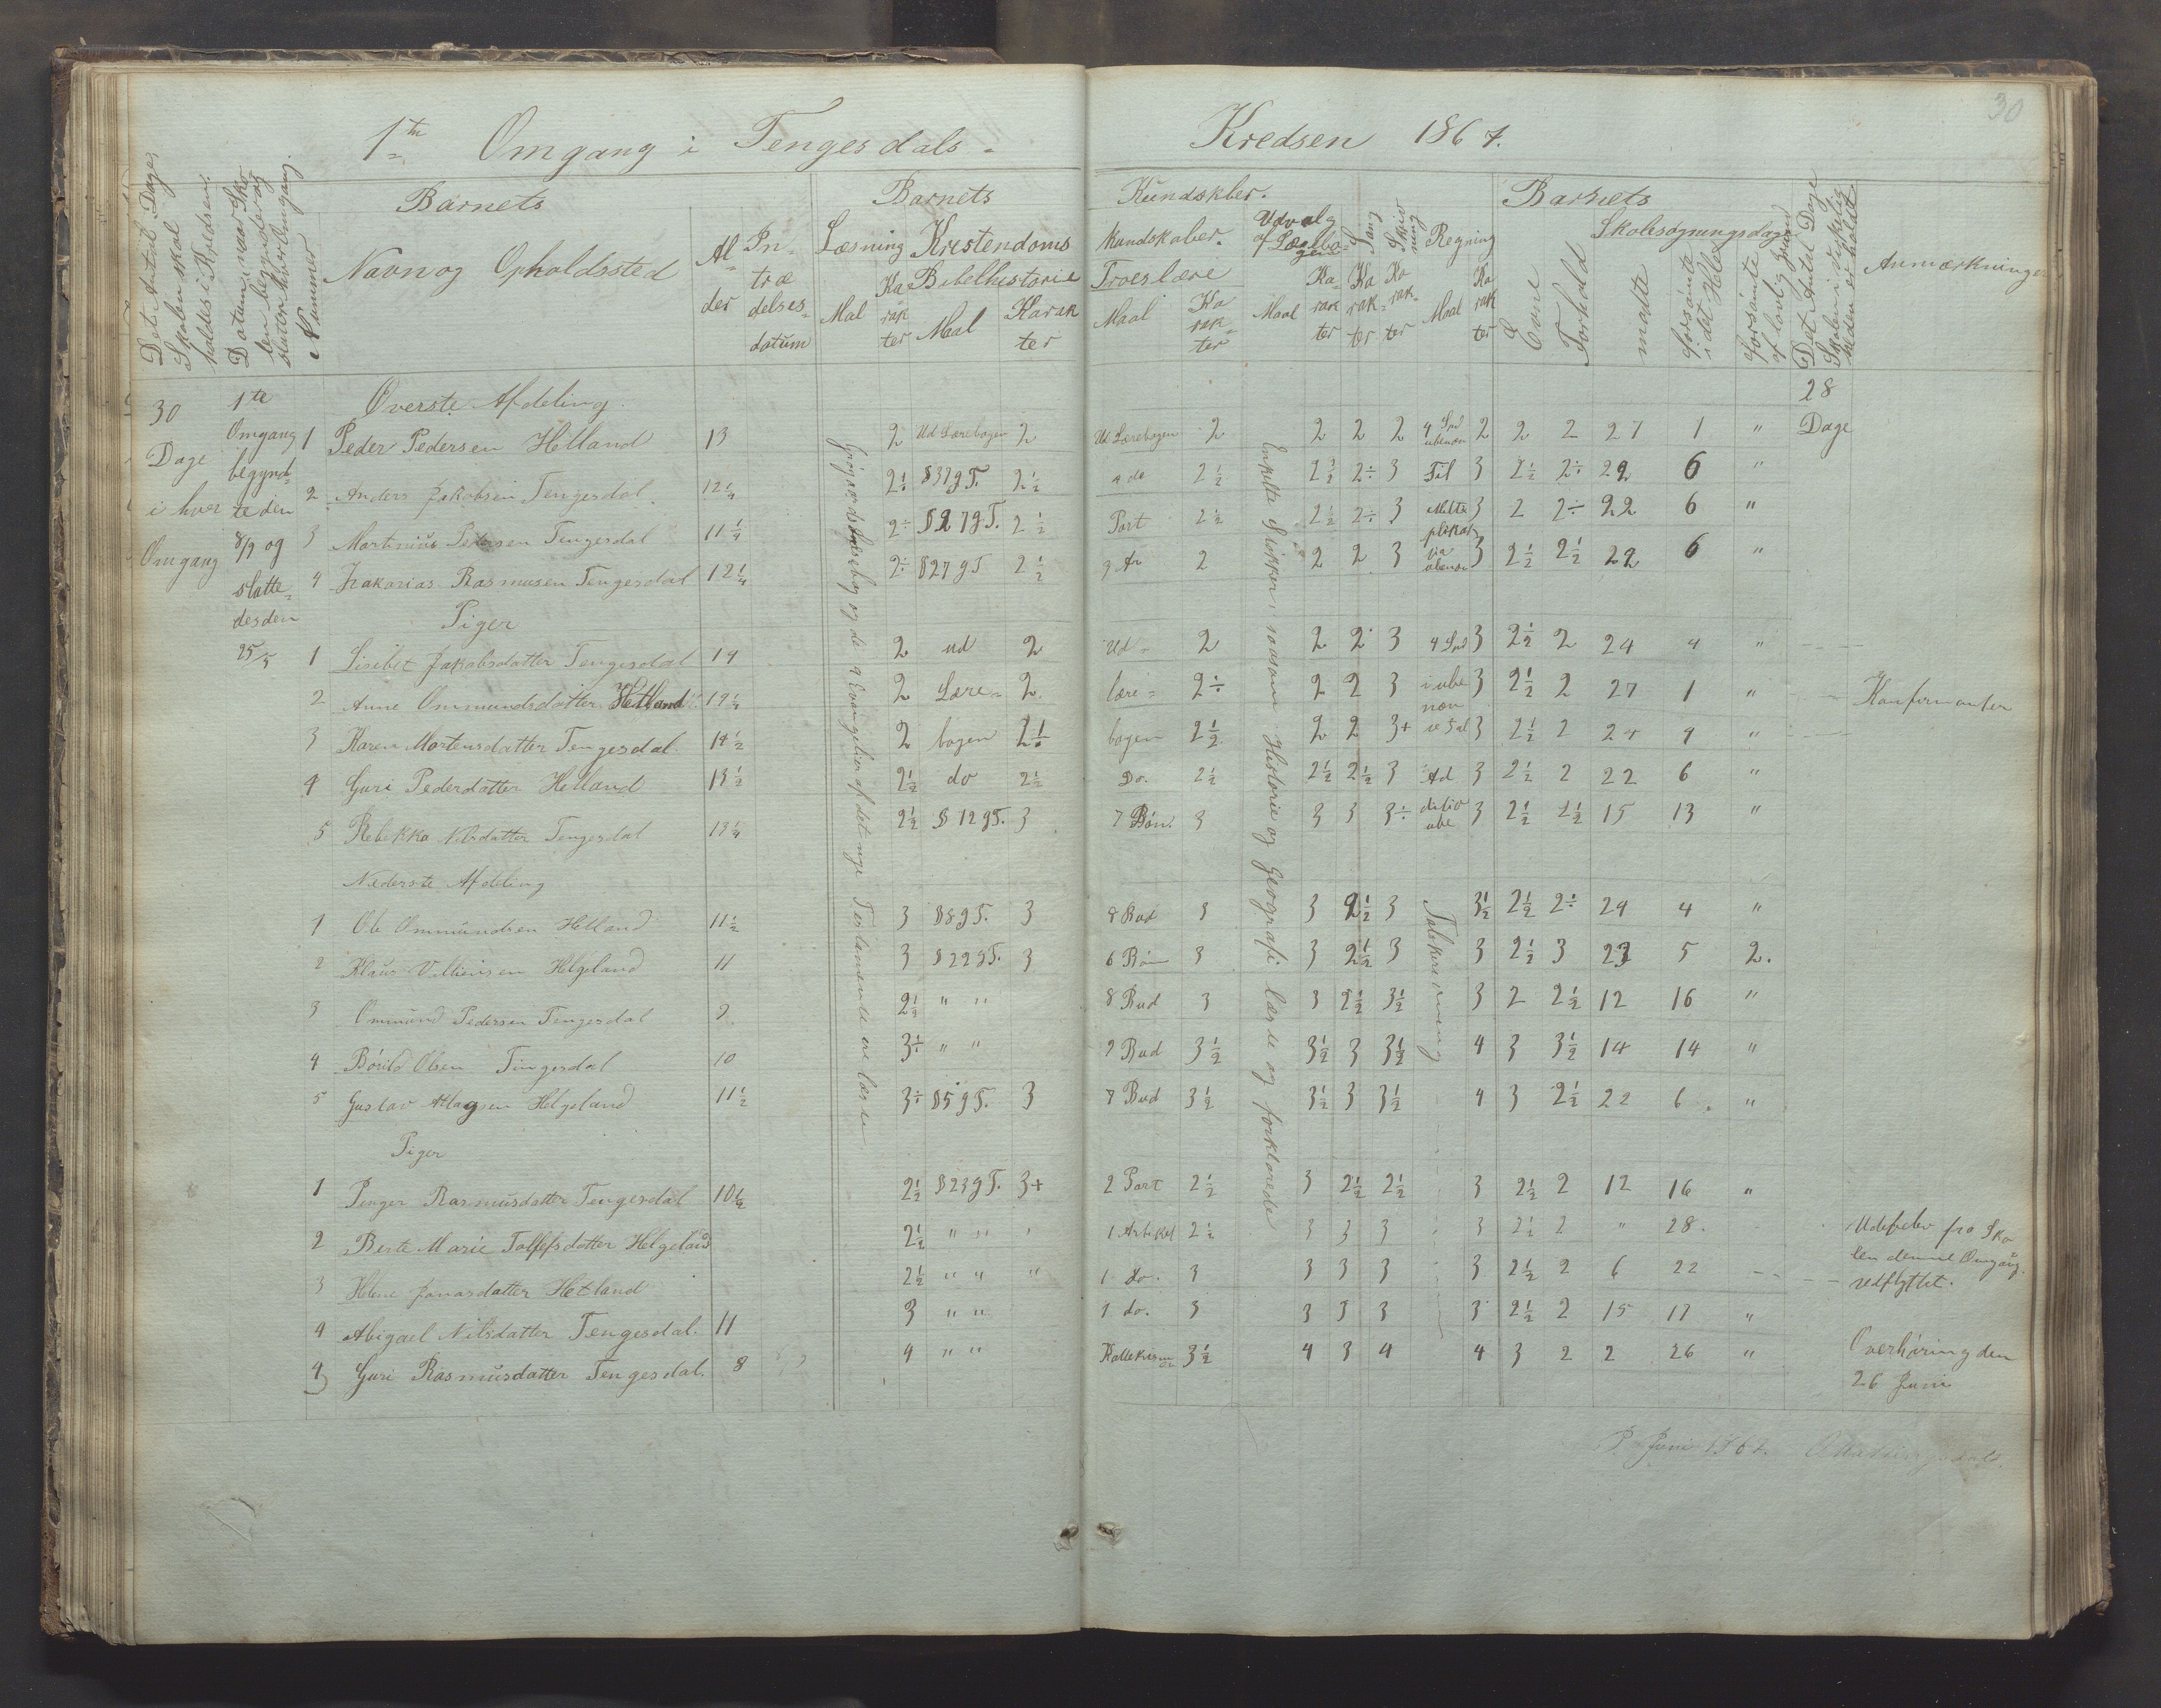 30
1te Omgang i Tengesdals-
Kredsen 1867.
Det Antal Dage Skolen skal holdes i Kredsen.
Datum naar Skolen begynder og slutter hver Omgang.
Nummer
Barnets
Navn og Opholdssted
Alder
Intrædelsesdatum
Barnets
Læsning
Mal
Karakter
Kristendoms
Bibelhistorie
Maal
Karakter
Kundskber.
Kundskaber.
Troeslære
Maal
Karakter
Udvalg af Læsebogen
Maal
Karakter
Sang
Karakter
Skrivning
Karakter
Regning
Maal
Karakter
Barnets
Evne
Forhold
Skolesøgningsdage
mødte
forsømte i det Hele
forsømte af lovlig Grund
Det Antal Dage Skolen i Virkeligheden er holdt
Anmærkninger
30 Dage i hver Omgang
1te Omgang begyndte den 8/4 og sluttedes den 25/5
28 Dage
Øverste Afdeling.
1 Peder Pedersen Helland 13 2 Ud Lærebogen 2 Ud Lærebogen 2 2 2 2 2 2 2 27 1 "
2 Anders Jakobsen Tengesdal 12 1/4 2÷ §37 g T. 2 1/2 2 1/2 2 1/2 2÷ 3 3 2 1/2 2÷ 22 6 "
3 Martinius Pedersen Tengesdal 11 1/4 2÷ §27 g T. 2 1/2 Part 2 1/2 2 1/2 2÷ 3 3 2 2÷ 22 6 "
4 Zakarias Rasmusen Tengesdal 12 1/4 2÷ §27 g T 2 1/2 2 2 2 3 3 2 1/2 2 1/2 22 6 "
Piger
1 Lisebet Jakobsdatter Tengesdal 14 2 ud 2 Ud- 2 2 2 3 3 2 1/2 2 24 4 "
2 Anne Ommundsdatter Hetland 14 1/4 2 Lære- 2 lære- 2÷ 2 2 3 3 2 1/2 2 27 1 " Konfirmanter
3 Karen Mortensdatter Tengesdal 14 1/2 2 bogen 2÷ bogen 2 1/2 2 2 3+ 3 2 1/2 2 24 4 "
4 Guri Pedersdatter Helland 13 1/2 2 1/2 do 2 1/2 Do. 2 1/2 2 1/2 2 1/2 3 3 2 1/2 2 22 6 "
5 Rebekka Nilsdatter Tengesdal 13 1/4 2 1/2 § 12 g T. 3 7 Bøn. 3 3 3 3÷ 3 2 1/2 2 1/2 15 13 "
Nederste Afdeling
1 Ole Ommundsen Helland 11 1/2 3 §8 g T. 3 8 Bud 3 3 2 1/2 3 3 1/2 2 1/2 2÷ 24 4 "
2 Klaus Villiensen Helgeland 11 3 §22 g T. 3 6 Bøn 3 3 2 1/2 3 3 2 1/2 3 23 5 2.
3 Ommund Pedersen Tengesdal 9 2 1/2 " " 8 Bud 3 3 2 1/2 3 1/2 3 2 2 1/2 12 16 "
4 Bouild Olsen Tengesdal 10 3÷ " " 9 Bud 3 1/2 3 1/2 3 3 1/2 4 3 3 1/2 14 14 "
5 Gustav Aslagsen Helgeland 11 1/2 3÷ §5 g T. 3 7 Bud 3 1/2 3 1/2 3 3 1/2 4 3 2 1/2 22 6 "
Piger
1 Rasmusdatter Tengesdal 10 1/2 2 1/2 §23 g T. 3+ 2 Part 2 1/2 3 2 1/2 2 1/2 3 2 1/2 2 12 16 "
2 Berte Marie Tollefsdatter Helgeland 2 1/2 " " 1 Artikel 2 1/2 3 3 3 3 2 1/2 2 " 28. Udeblev fra Skolen denne Omgang.
3 Helene Jonasdatter Hetland 2 1/2 " " " 1 do. 3 3 3 3 3 2 1/2 2 6 22 vedflyttet.
4 Abigael Nilsdatter Tengesdal. 11 3 " " 1 do. 3 3 3 3 3 2 1/2 2 15 17 "
5 Guri Rasmusdatter Tengesdal. 8 4 " " 3 1/2 4 3 4 4 3 2 2 26 "
Overhøring den 26 Juni
Enkelte Stykker, saasom Historie og Geografi læste og forklarede
Juni 1867.